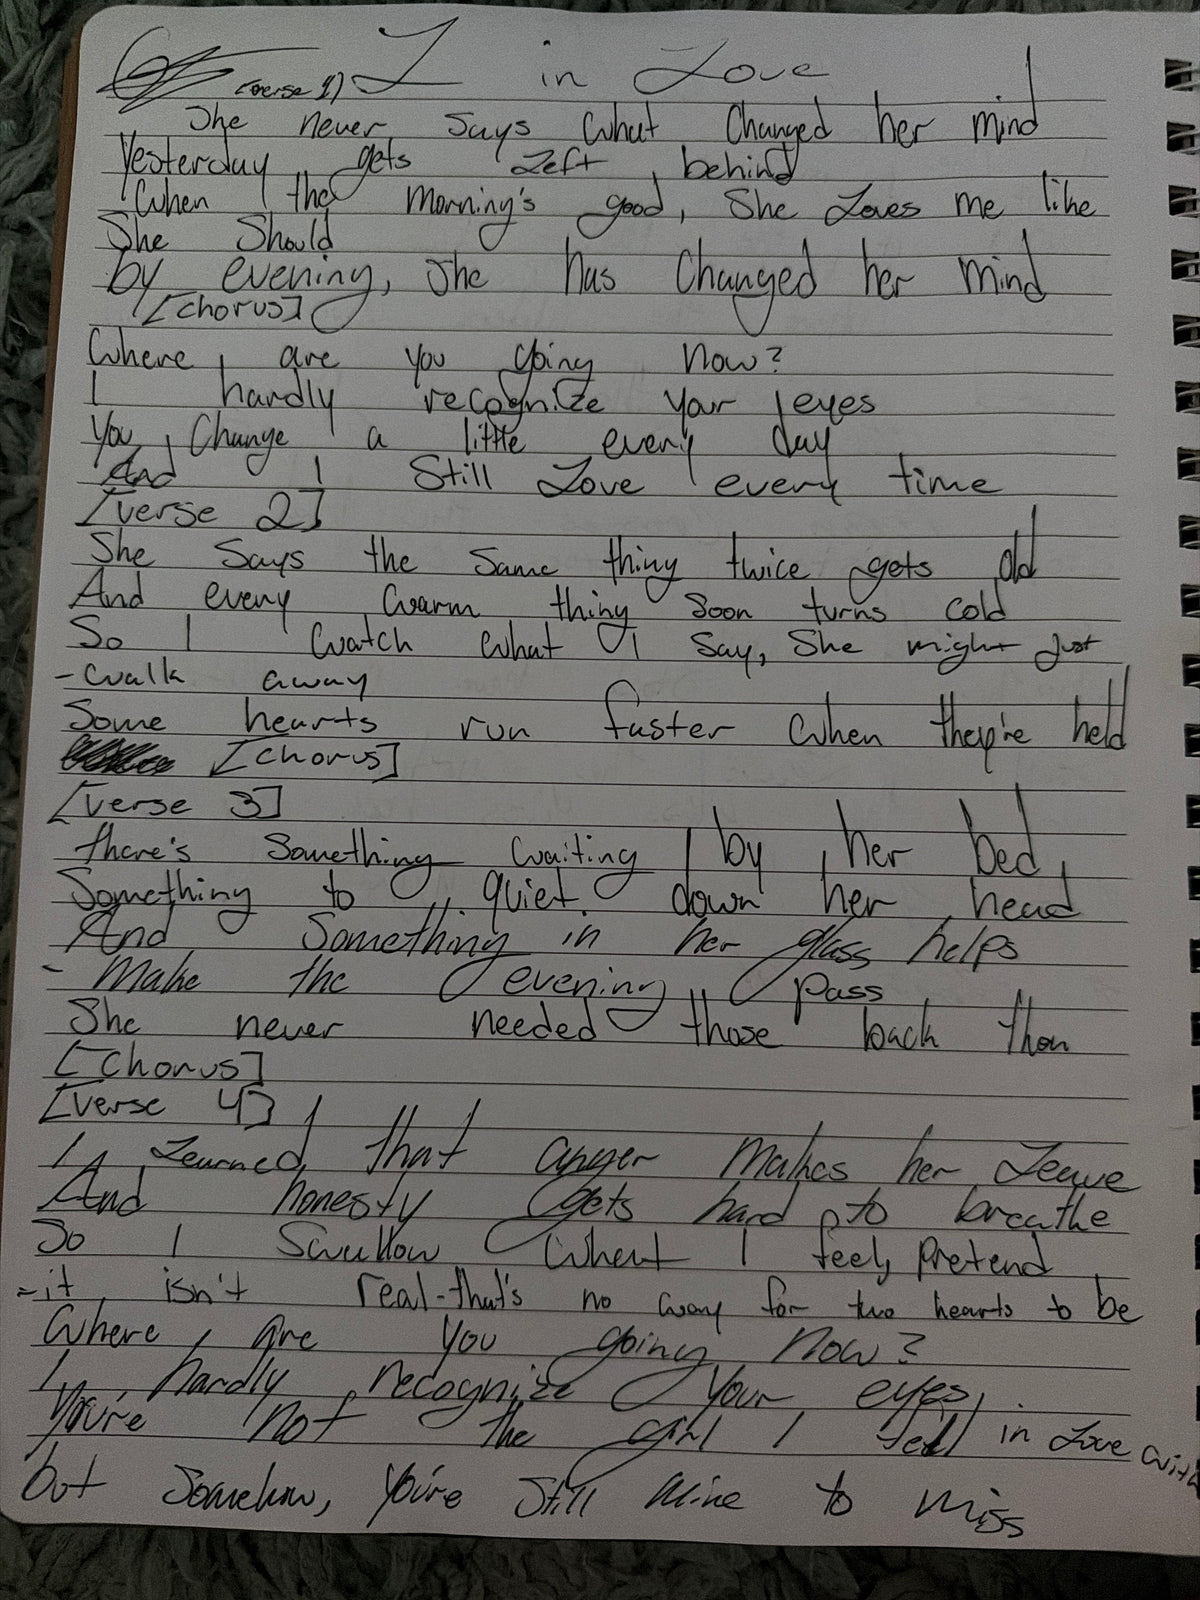 (verse 1) I in Love
She never says what changed her mind
Yesterday gets Left behind
When the morning's good, She Loves me like
She Should
by evening, she has Changed her mind
[Chorus]
Where are you going now?
I hardly recognize your eyes
You Change a little every day
And I Still Love every time
[verse 2]
She Says the same thing twice gets old
And every warm thing soon turns cold
So I watch what I say, She might Just
-walk away
Some hearts run faster when they're held
[Chorus]
[verse 3]
there's Something waiting by her bed
Something to quiet down her head
And Something in her glass helps
- Make the evening pass
She never needed those back then
[Chorus]
[Verse 4]
I Learned that anger makes her Leave
And honesty gets hard to breathe
So I Swallow What I feel, pretend
-it isn't real-that's no way for two hearts to be
Where are you going Now?
I hardly recognize your eyes
You're not the girl I fell in Love with
but Somehow, you're Still Mine to Miss